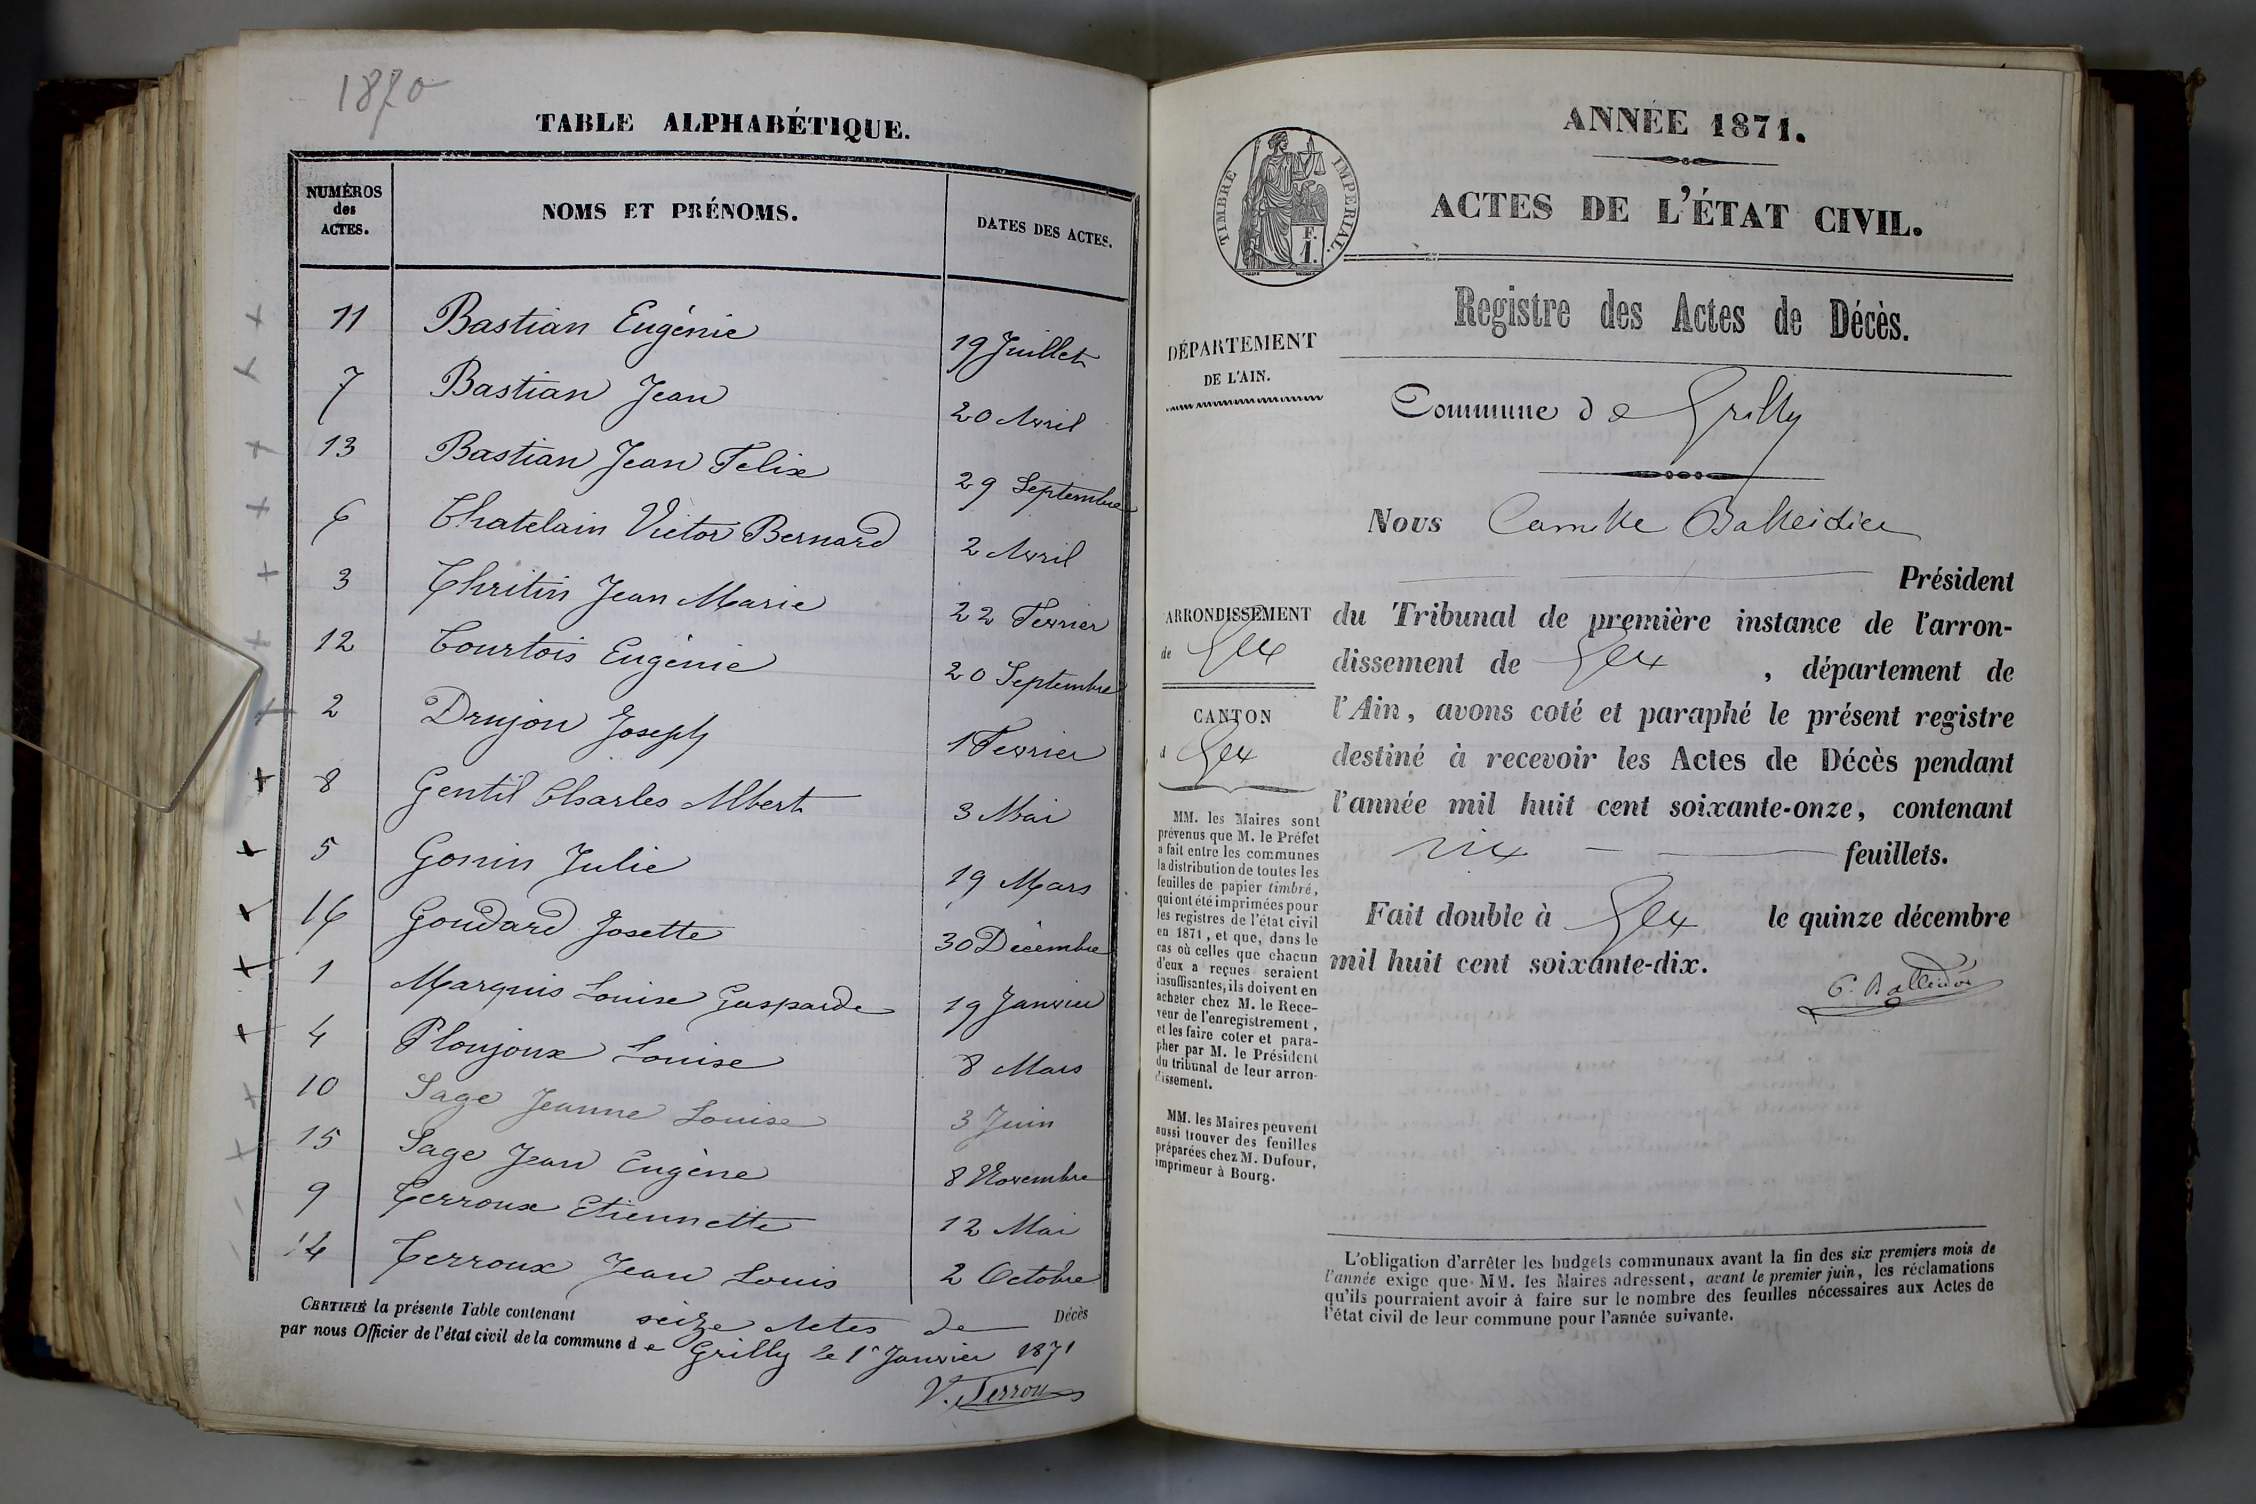 1870
TABLE ALPHABÉTIQUE.
NUMÉROS des ACTES.
NOMS ET PRÉNOMS.
DATES DES ACTES.
11 Bastian Eugénie 19 Juillet
7 Bastian Jean 20 Avril
13 Bastian Jean Felix 29 Septembre
6 Chatelain Victor Bernard 2 Avril
3 Chritin Jean Marie 22 Fevrier
12 Courtois Eugénie 20 Septembre
2 Drujon Joseph 1 Fevrier
8 Gentil Charles Albert 3 Mai
5 Gonin Julie 19 Mars
16 Goudard Josette 30 Décembre
1 Marquis Louise Gasparde 19 Janvier
4 Ploujoux Louise 8 Mars
10 Sage Jeanne Louise 3 Juin
15 Sage Jean Eugène 8 Novembre
9 Terroux Etiennette 12 Mai
14 Terroux Jean Louis 2 Octobre
CERTIFIÉ la présente Table contenant seize Actes de Décès
par nous Officier de l'état civil de la commune de Grilly le 1r Janvier 1871
V. Terroux
ANNÉE 1871.
TIMBRE IMPERIAL.
F.
1.
ACTES DE L'ÉTAT CIVIL.
Registre des Actes de Décès.
DÉPARTEMENT
DE L'AIN.
Commune de Grilly
Nous Camille Balleidier
Président
ARRONDISSEMENT
de Gex
CANTON
d Gex
du Tribunal de première instance de l'arron-
dissement de Gex, département de
l'Ain, avons coté et paraphé le présent registre
destiné à recevoir les Actes de Décès pendant
l'année mil huit cent soixante-onze, contenant
six feuillets.
Fait double à Gex le quinze décembre
mil huit cent soixante-dix.
C. Balleidier
MM. les Maires sont
prévenus que M. le Préfet
a fait entre les communes
la distribution de toutes les
feuilles de papier timbré,
qui ont été imprimées pour
les registres de l'état civil
en 1871, et que, dans le
cas où celles que chacun
d'eux a reçues seraient
insuffisantes, ils doivent en
acheter chez M. le Rece-
veur de l'enregistrement,
et les faire coter et para-
pher par M. le Président
du tribunal de leur arron-
dissement.
MM. les Maires peuvent
aussi trouver des feuilles
préparées chez M. Dufour,
imprimeur à Bourg.
L'obligation d'arrêter les budgets communaux avant la fin des six premiers mois de
l'année exige que MM. les Maires adressent, avant le premier juin, les réclamations
qu'ils pourraient avoir à faire sur le nombre des feuilles nécessaires aux Actes de
l'état civil de leur commune pour l'année suivante.